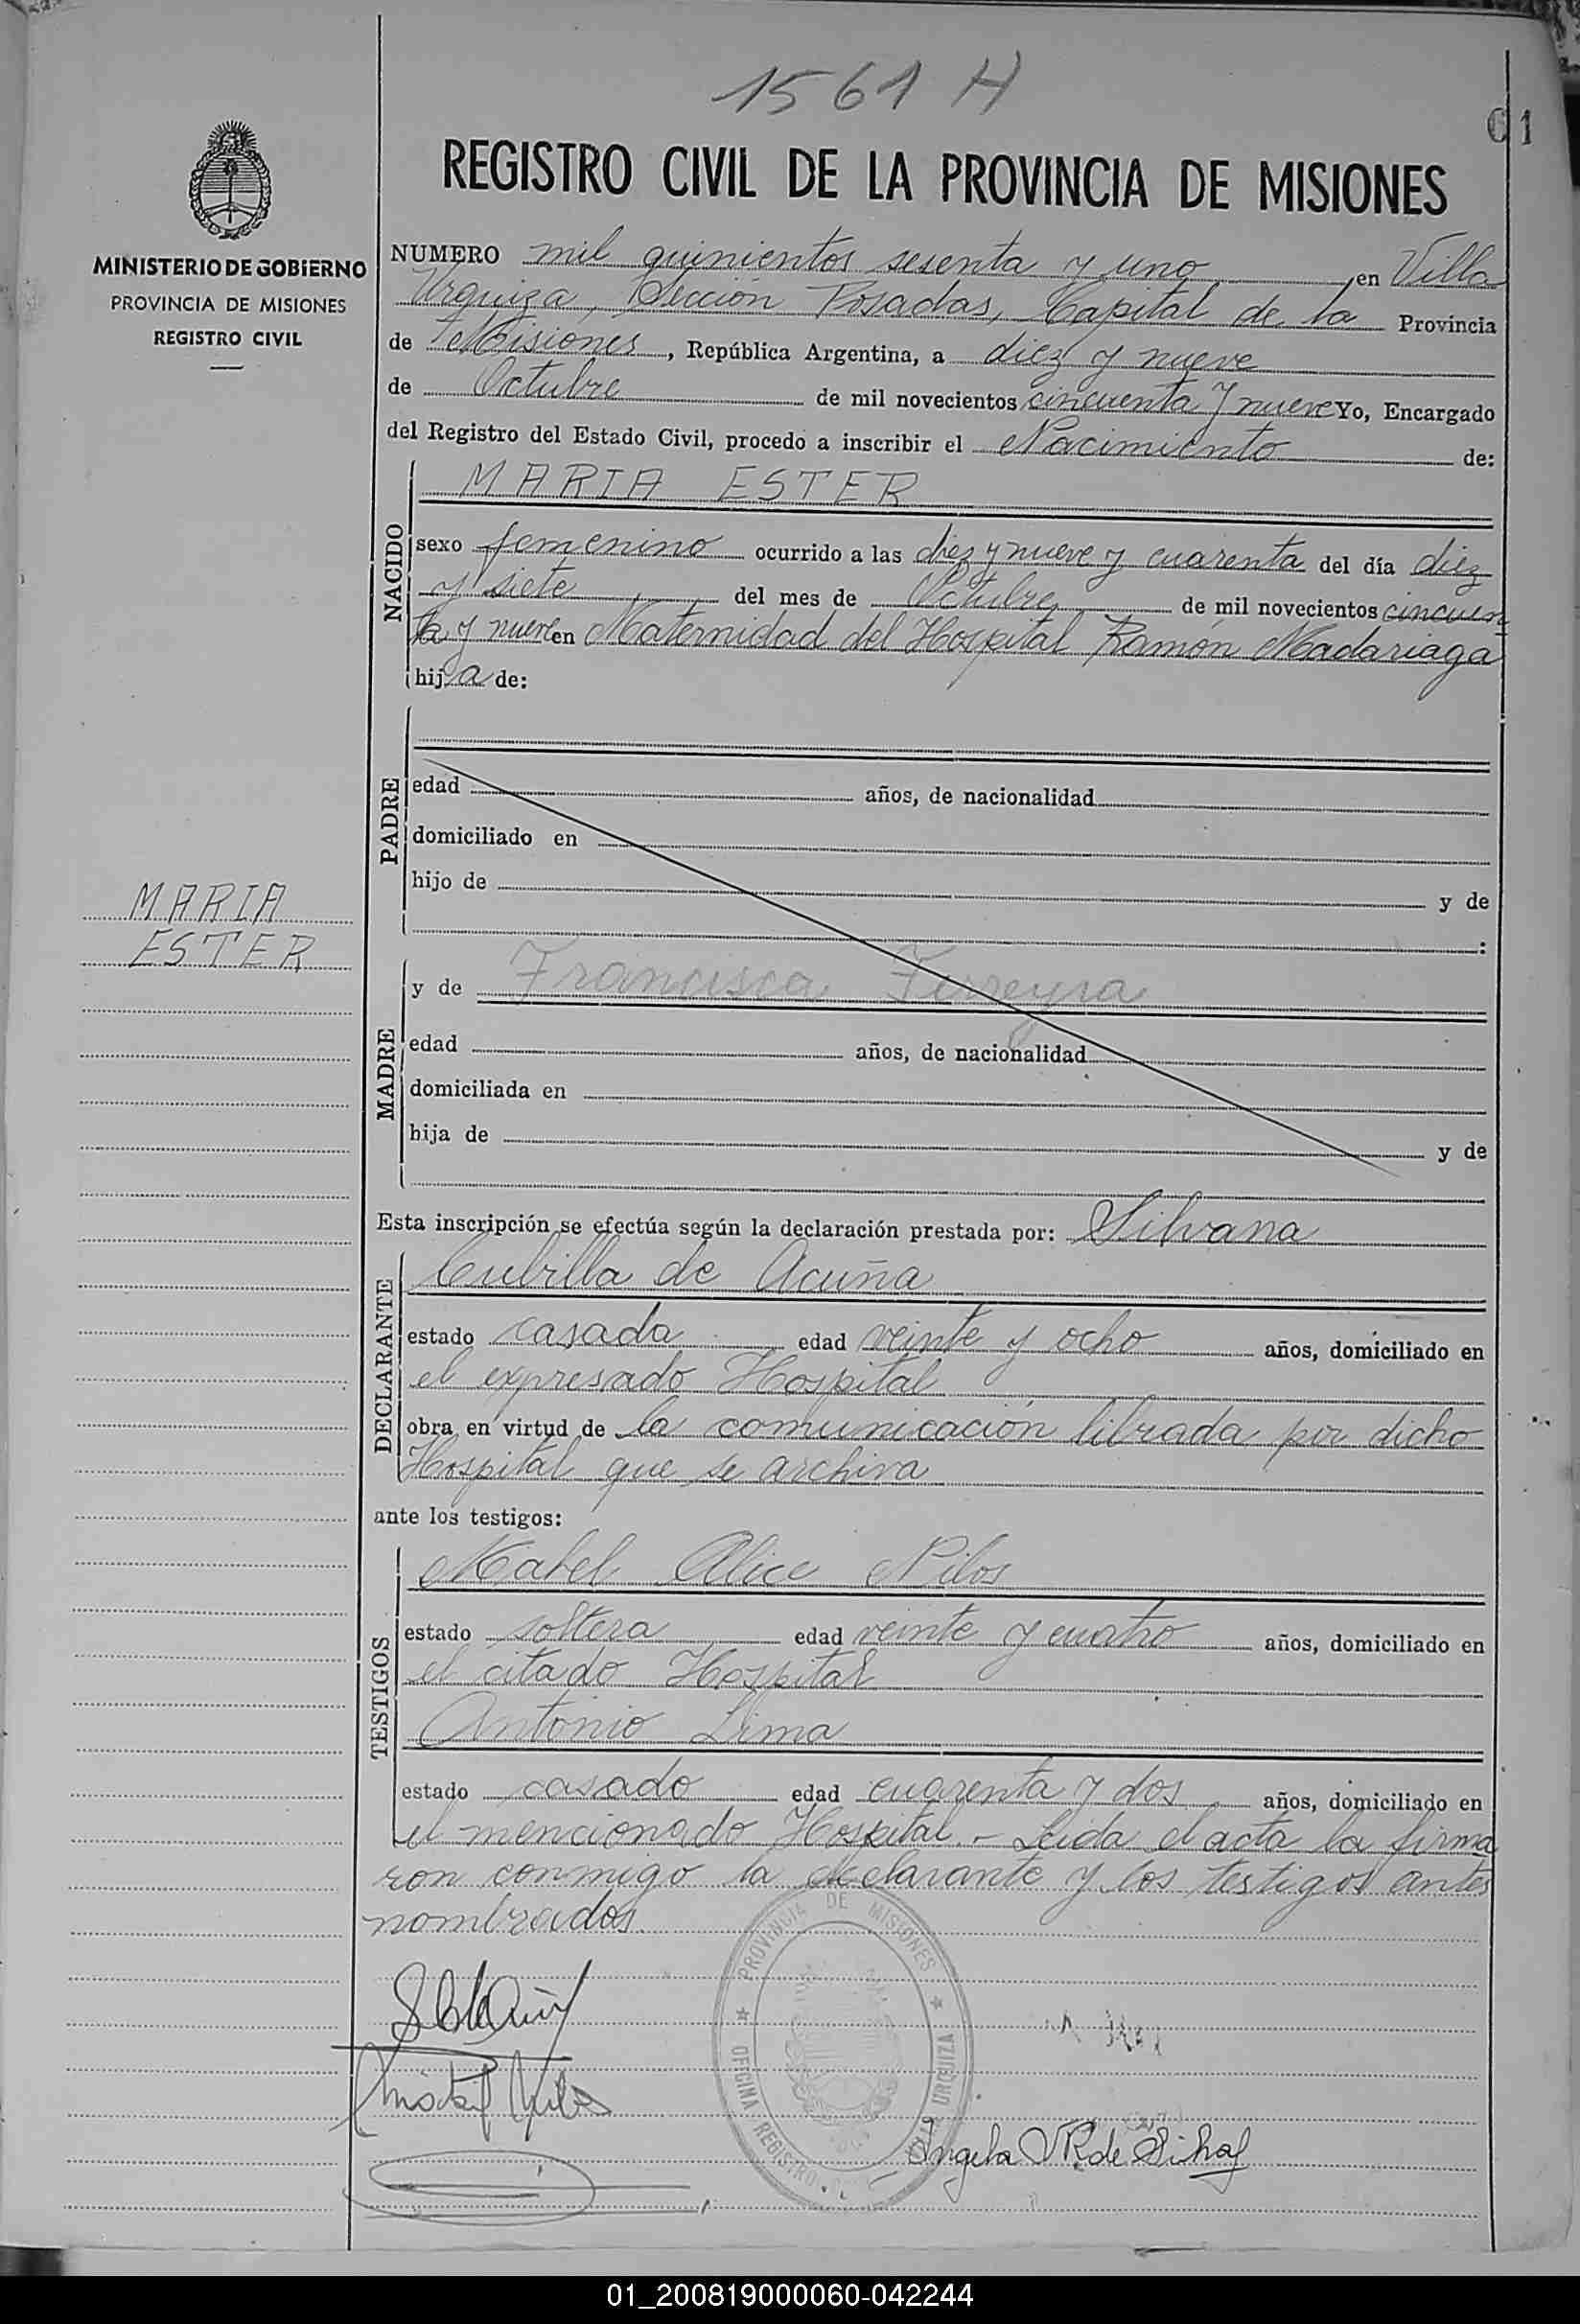 1561 H
01
REGISTRO CIVIL DE LA PROVINCIA DE MISIONES
MINISTERIO DE GOBIERNO
PROVINCIA DE MISIONES
REGISTRO CIVIL
NUMERO mil quinientos sesenta y uno en Villa
Urquiza, Sección Posadas, Capital de la Provincia
de Misiones, República Argentina, a diez y nueve
de Octubre de mil novecientos cincuenta y nueve Yo, Encargado
del Registro del Estado Civil, procedo a inscribir el Nacimiento de:
NACIDO
MARIA ESTER
sexo femenino ocurrido a las diez y nueve y cuarenta del día diez
y siete del mes de Octubre de mil novecientos cincuen
ta y nueve en Maternidad del Hospital Ramón Madariaga
hija de:
PADRE
edad años, de nacionalidad
domiciliado en
hijo de y de
:
MARIA
ESTER
MADRE
y de Francisca Ferreyra
edad años, de nacionalidad
domiciliada en
hija de y de
Esta inscripción se efectúa según la declaración prestada por: Silvana
DECLARANTE
Cubilla de Acuña
estado casada edad veinte y ocho años, domiciliado en
el expresado Hospital
obra en virtud de la comunicación librada por dicho
Hospital que se archiva
ante los testigos:
TESTIGOS
Mabel Alice Nilos
estado soltera edad veinte y cuatro años, domiciliado en
el citado Hospital
Antonio Lima
estado casado edad cuarenta y dos años, domiciliado en
el mencionado Hospital.- Leída el acta la firma
ron conmigo la declarante y los testigos antes
nombrados.
PROVINCIA DE MISIONES
OFICINA REGISTRO
URQUIZA
Angela
01_200819000060-042244